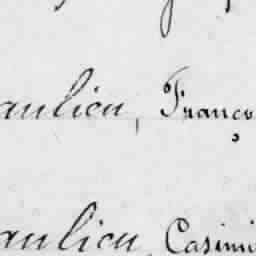 aulieu, Franço
aulieu, Casimi